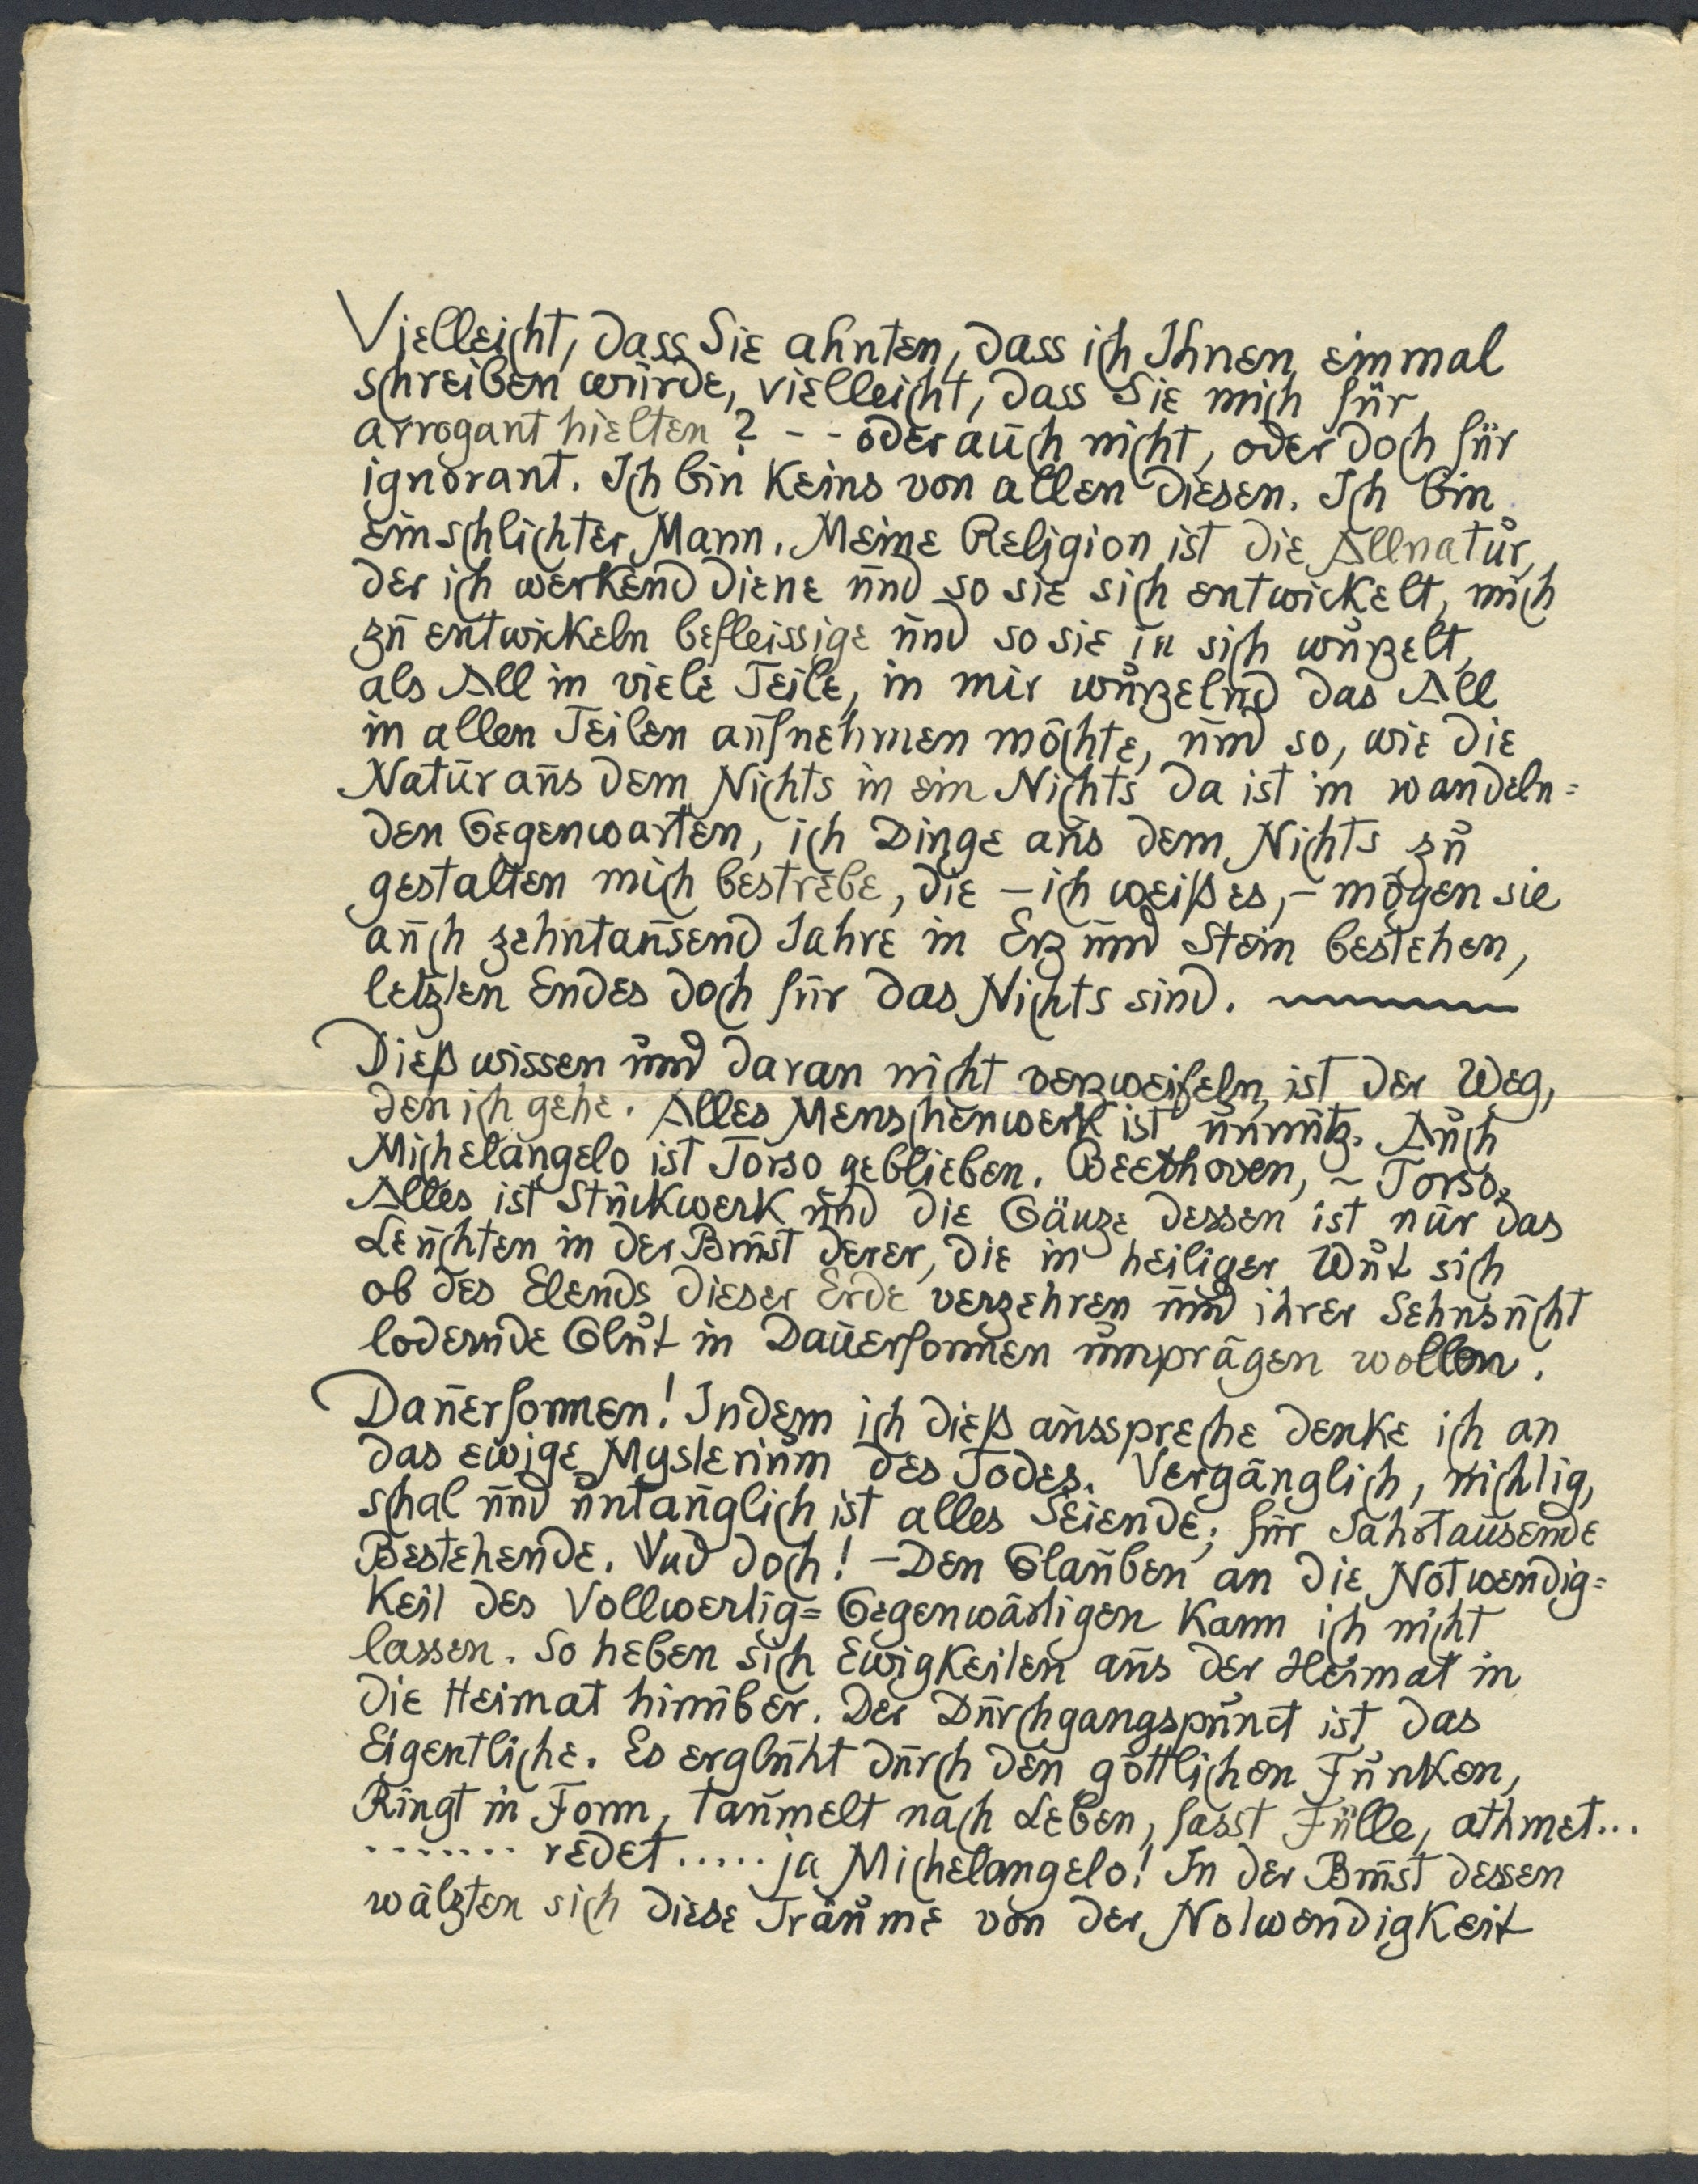 Vielleicht, dass Sie ahnten, dass ich Ihnen einmal
schreiben würde, vielleicht, dass Sie mich für
arrogant hielten? - - oder auch nicht, oder doch für
ignorant. Ich bin keins von allen diesen. Ich bin
ein schlichter Mann. Meine Religion ist die Allnatur,
der ich werkend diene und so sie sich entwickelt, mich
zu entwickeln befleissige und so sie in sich wurzelt,
als All in viele Teile, in mir wurzelnd das All
in allen Teilen aufnehmen möchte, und so, wie die
Natur aus dem Nichts in ein Nichts da ist in wandeln=
den Gegenwarten, ich Dinge aus dem Nichts zu
gestalten mich bestrebe, die – ich weiß es, – mögen sie
auch zehntausend Jahre in Erz und Stein bestehen,
letzten Endes doch für das Nichts sind.
Dieß wissen und daran nicht verzweifeln, ist der Weg,
den ich gehe. Alles Menschenwerk ist unnütz. Auch
Michelangelo ist Torso geblieben. Beethoven, ~ Torso.
Alles ist Stückwerk und die Gänze dessen ist nur das
Leuchten in der Brust derer, die in heiliger Wut sich
ob des Elends dieser Erde verzehren und ihrer Sehnsucht
lodernde Glut in Dauerformen umprägen wollen.
Dauerformen! Indem ich dieß ausspreche denke ich an
das ewige Mysterium des Todes. Vergänglich, nichtig,
schal und untauglich ist alles Seiende; für Jahrtausende
Bestehende. Und doch! – Den Glauben an die Notwendig=
keit des Vollwertig= Gegenwärtigen kann ich nicht
lassen. So heben sich Ewigkeiten aus der Heimat in
die Heimat hinüber. Der Durchgangspunct ist das
Eigentliche. Es erglüht durch den göttlichen Funken,
Ringt in Form, taumelt nach Leben, fasst Fülle, athmet...
....... redet ..... ja Michelangelo! In der Brust dessen
wälzten sich diese Träume von der Notwendigkeit